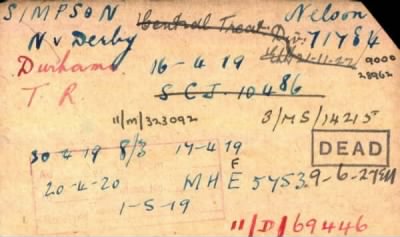 SIMPSON Nelson
N v Derby Central Treat Div: 71784
Durhams. 16-4-19 21-11-22 9000
T. R SCJ-10486 28962
11/M/323092 3/MS/14215
30-4-19 8/3 17-4-19 DEAD
20-4-20 MHE F 57539-6-27
1-5-19
11/D/69446